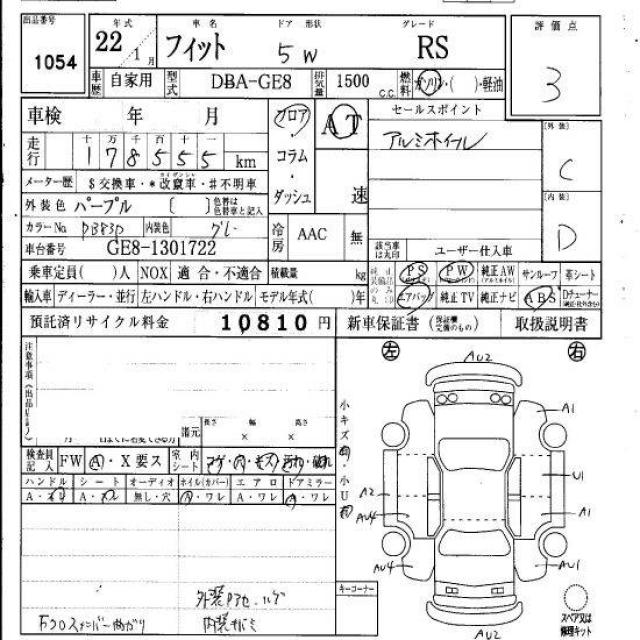 出品番号 年式 車名 ドア 形状 グレード 評価点
1054 22年 1月 フィット 5W RS 3
車歴 自家用 型式 DBA-GE8 排気量 1500 C.C. 燃料 ガソリン・( )・軽油
車検 年 月 フロア・ AT セールスポイント
コラム・ アルミホイール [外装]
十 万 千 百 十 一
走行 178555 km C
メーター歴 $交換車・*改竄車・#不明車 ダッシュ 速 [内装]
外装色 パープル [ ] 色替は色替車と記入 D
カラーNo. PB83P 内装色 グレー 冷房 AAC 無
車台番号 GE8-1301722 該当車は丸印 ユーザー仕入車
乗車定員( )人 NOX 適合・不適合 積載量 kg PS PW 純正AW サンルーフ 革シート
輸入車 ディーラー・並行 左ハンドル・右ハンドル モデル年式( )年 エアバッグ 純正TV 純正ナビ ABS Dチューナー
預託済リサイクル料金 10810円 新車保証書 (保証継交換のもの) 取扱説明書
左 右
AU2
注意事項
諸元 長さ × 幅 × 高さ
小キズ
小U
A1
U1
A2
AU4 A1
検査員記入 FW A・X要ス 室内 シート コゲ・穴・キズ・汚れ・破れ
ハンドル シート オーディオ ホイル(カバー) エアロ ドアミラー
A・スリ A・スレ 無し・穴 A・ワレ A・ワレ A・ワレ
AU4 AU1
キーコーナー
外装
内装キバミ
スペア又は修理キット
AU2